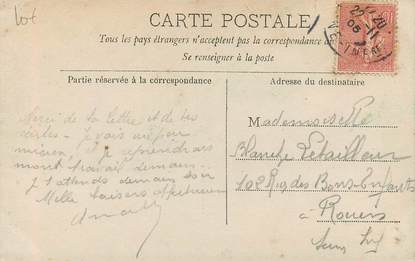 lot
CARTE POSTALE
Tous les pays étrangers n'acceptent pas la correspondance a
Se renseigner à la poste
Partie réservée à la correspondance
Adresse du destinataire
Merci de ta lettre et de tes
Je vais un peu
mieux, et je reprendrais
mont travail demain
Je t'attends demain soir
Mille baisers
Mademoiselle
Blanche
102 Rue des Bons Enfants
à Rouen